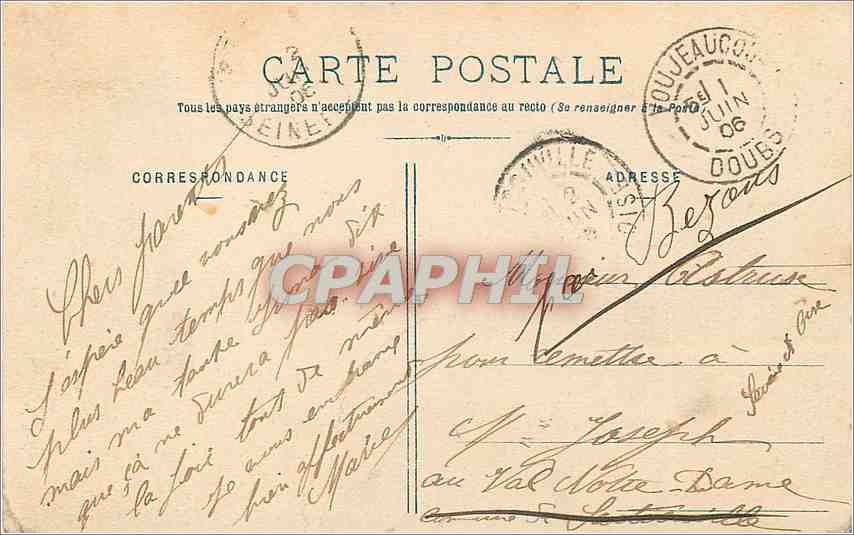 CARTE POSTALE
Tous les pays étrangers n'acceptent pas la correspondance au recto (Se renseigner à la Poste)
CORRESPONDANCE
ADRESSE
2
JUIN
06
VOUJEAUCOURT
1
JUIN
06
DOUBS
Chers parents
J'espère que vous avez
plus beau temps que nous
mais ma tante
que ça ne durera pas. Vive
la joie tout de même
Je vous embrasse
bien affectueusement
Marie
Bezons
par
Monsieur Astruse
pour remettre à
Mr Joseph
au Val Notre-Dame
Commune de Sartrouville
Seine et Oise
CPAPHIL